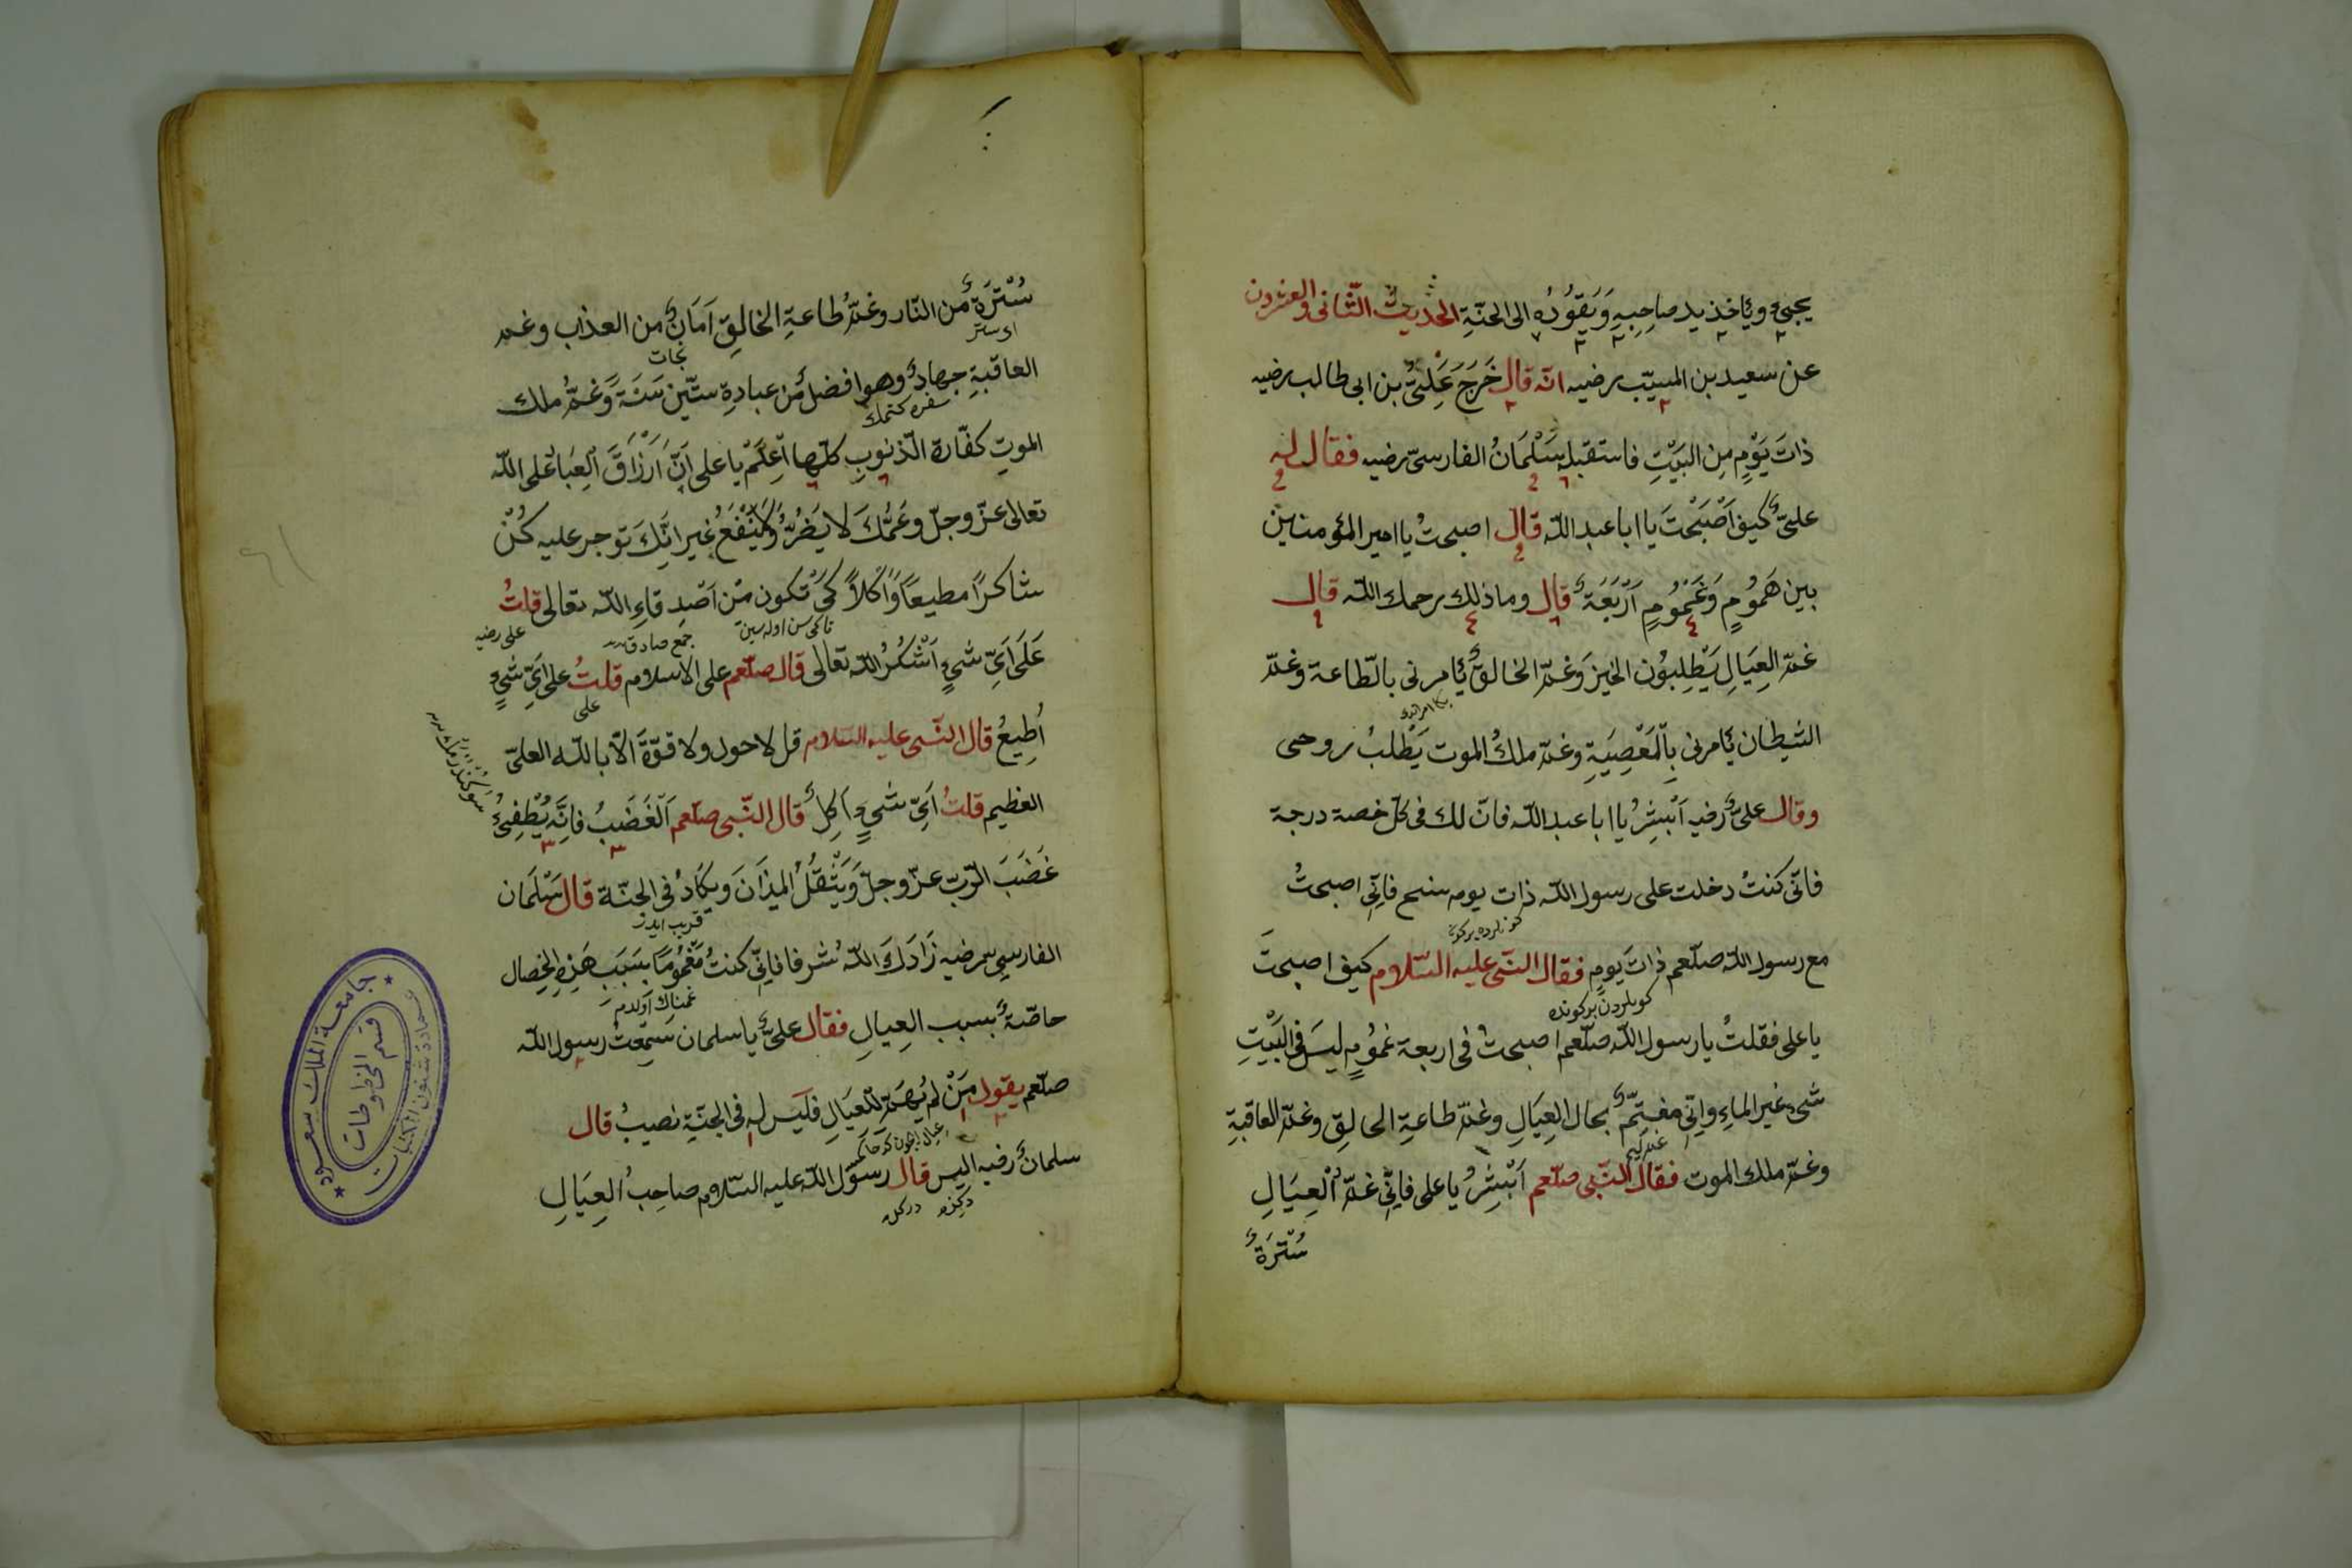 يجيئ ويأخذ يد صاحِبِهِ وَيَقُودُهُ الى الجنّةِ الحديث الثّانى والعشرون
عن سعيد بن المسيّب رضيه انّه قال خَرَجَ عَلِىُّ بن ابى طالب رضيه
ذاتَ يَوْمٍ مِنَ البَيْتِ فاستقبله سَلْمَانُ الفارسىّ رضيه فقال له
علىٌّ كيف اَصْبَحْتَ يا ابا عبد اللّه قال اصبحتُ يا امير المؤمنين
بين هَمُومٍ وَغَمُومٍ اَرْبَعَةٌ قال وما ذلك رحمك اللّه قال
غمّ العِيَالِ يَطْلِبوُن الخبزَ وَغمّ الخالقِ يأمرنى بالطّاعة وغمّ
الشيطان يأمرنى بِالْمَعْصِيَةِ وغمّ ملكُ الموت يَطْلبُ روحى
وقال علىٌّ رضيه اَبْشِرْ يا ابا عبد اللّه فانّ لك فى كلّ خصة درجة
فانّى كنتُ دخلت على رسول اللّه ذات يوم فانّى اصبحتُ
كونلرده بركون
مع رسول اللّه صلّعم ذاتَ يومٍ فقال النّبى عليه السّلام كيف اصبحتَ
كونلردن بركونده
يا على فقلتُ يا رسول اللّه صلّعم اصبحتُ فى اربعة غمُومٍ ليسَ فى البَيْتِ
شىءٌ غير الماءِ وانّى مغتمّ بحال العِيَالِ وغمّ طاعةِ الخالِقِ وغمّ العاقبةِ
وغمّ ملك الموت فقال النّبى صلّعم اَبْشِرْ يا على فانّ غمّ الْعِيَالِ
سُتْرَةٌ
سُتْرَةٌ من النّار وغمّ طاعةِ الخالِقِ اَمَانٌ من العذاب وغم
نجات
العاقبةِ جهادٌ وهو افضل من عبادةِ ستّين سَنَةً وَغمُّ ملك
الموتِ كفّارة الذّنوبِ كلّها اِعْلَمْ يا على اَنَّ اَرْزَاقَ الْعِبَادِ على اللّه
تعالى عزّ وجلّ وغمُّكَ لا يَضُرُّ وَلَايَنْفَعُ غير انَّكَ توجر عليه كُنْ
شاكرًا مطيعًا وَاَكلاً كَىْ تكون مِنْ اَصْدِقاءِ اللّه تعالى قلتُ
جمع صادق
على رضيه
عَلَى اَىِّ شىءٍ اَشْكُرُ اللّه تعالى قال صلّعم على الاسلام قلتُ على اَىّ شىءٍ
على
اُطِيعُ قال النّبى عليه السّلام قل لا حول ولا قوّة الّا باللّه العلىّ
العظيم قلتُ اَىّ شىءٍ اَكِلُ قال النّبى صلّعم اَلْغَضَبُ فانَّه يُطْفِىُ
غَضَبَ الرّبّ عزّ وجلّ وَيَثْقُلُ الميزَانَ ويكَادُ فى الجنّة قال سَلْمَان
قريب ايدر
الفارسى رضيه زَادَكَ اللّه شرفا فانّى كنتُ مَغْمُومًا بسَبَبِ هَذِهِ الخِصال
غمناك اولدم
خاصّةً بسبب العِيالِ فقال علىٌّ يا سلمان سَمِعْتُ رسول اللّه
صلّعم يقول مَنْ لم يَهْتَمّ للعِيَالِ فليَس له فى الجنّةِ نصيبٌ قال
سلمانٌ رضيه اليس قال رسول اللّه عليه السّلام صاحِبُ العِيَالِ
دكلمه
جامعة الملك سعود
عمادة شئون المكتبات
قسم المخطوطات